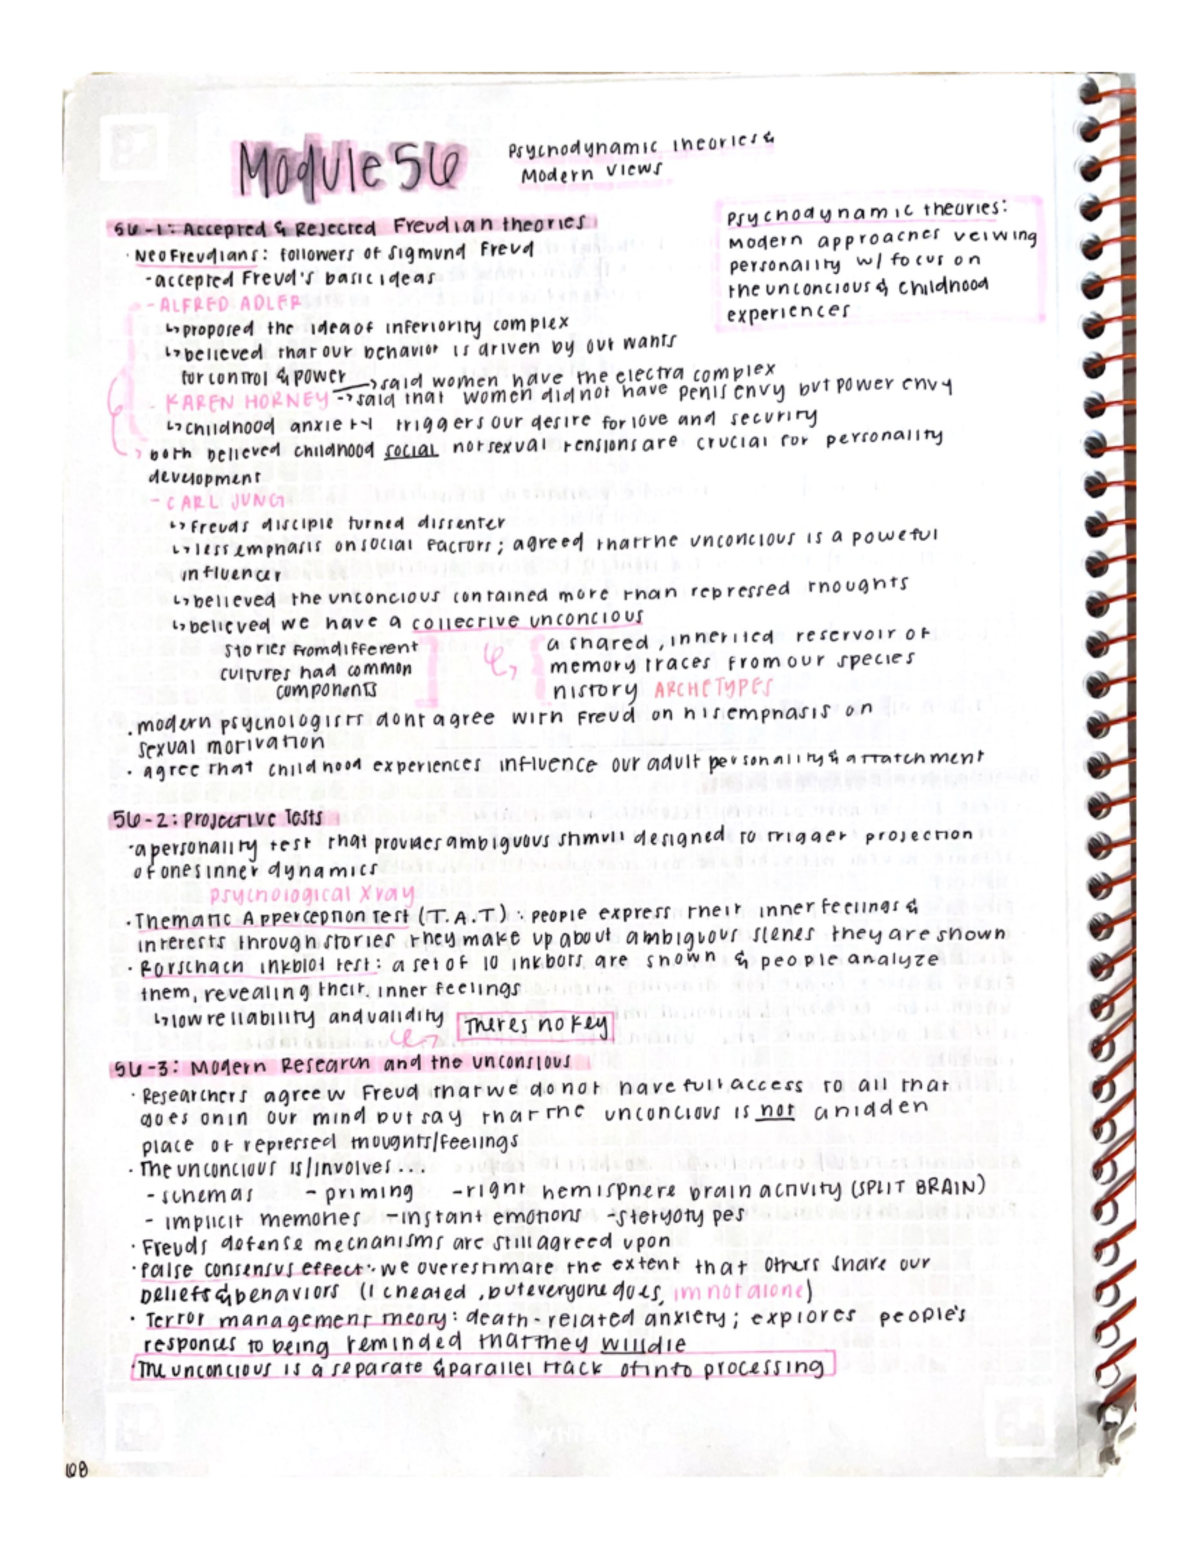 Module 56
Psychodynamic Theories &
Modern Views
56-1: Accepted & Rejected Freudian theories
· NeoFreudians: followers of Sigmund Freud
-accepted Freud's basic ideas
- ALFRED ADLER
↳proposed the idea of inferiority complex
↳believed that our behavior is driven by out wants
for control & power
→said women have the electra complex
- KAREN HORNEY -> said that women did not have penis envy but power envy
↳childhood anxiety triggers our desire for love and security
both believed childhood social not sexual tensions are crucial for personality
development
- CARL JUNG
↳Freuds disciple turned dissenter
↳less emphasis on social factors; agreed that the unconcious is a poweful
influencer
↳believed the unconcious contained more than repressed thoughts
↳believed we have a collective unconcious
stories from different
cultures had common
components
a shared, inherited reservoir of
memory traces from our species
history ARCHETYPES
· modern psychologists dont agree with Freud on his emphasis on
sexual motivation
· agree that childhood experiences influence our adult personality & attatchment
Psychodynamic theories:
Modern approaches veiwing
personality w/ focus on
the unconcious & childhood
experiences
56-2: Projective Tests
·a personality test that provides ambiguous stimuli designed to trigger projection
of ones inner dynamics
psychological Xray
· Thematic Apperception Test (T.A.T) : people express their inner feelings &
interests through stories they make up about ambiguous scenes they are shown
· Rorschach inkblot test: a set of 10 inkbots are shown & people analyze
them, revealing their inner feelings
↳low reliability and validity
Theres no key
56-3: Modern Research and the unconsious
· Researchers agree w Freud that we do not have full access to all that
goes on in our mind but say that the unconcious is not a hidden
place of repressed thoughts/feelings
· The unconcious is/involves....
- schemas - priming -right hemisphere brain activity (SPLIT BRAIN)
- implicit memories -instant emotions -steryotypes
· Freuds defense mechanisms are still agreed upon
· false consensus effect: we overestimate the extent that others share our
beliefs & behaviors (I cheated, but everyone does, im not alone)
· Terror management theory: death-related anxiety; explores people's
responces to being reminded that they will die
·The unconcious is a separate & parallel track of info processing
108